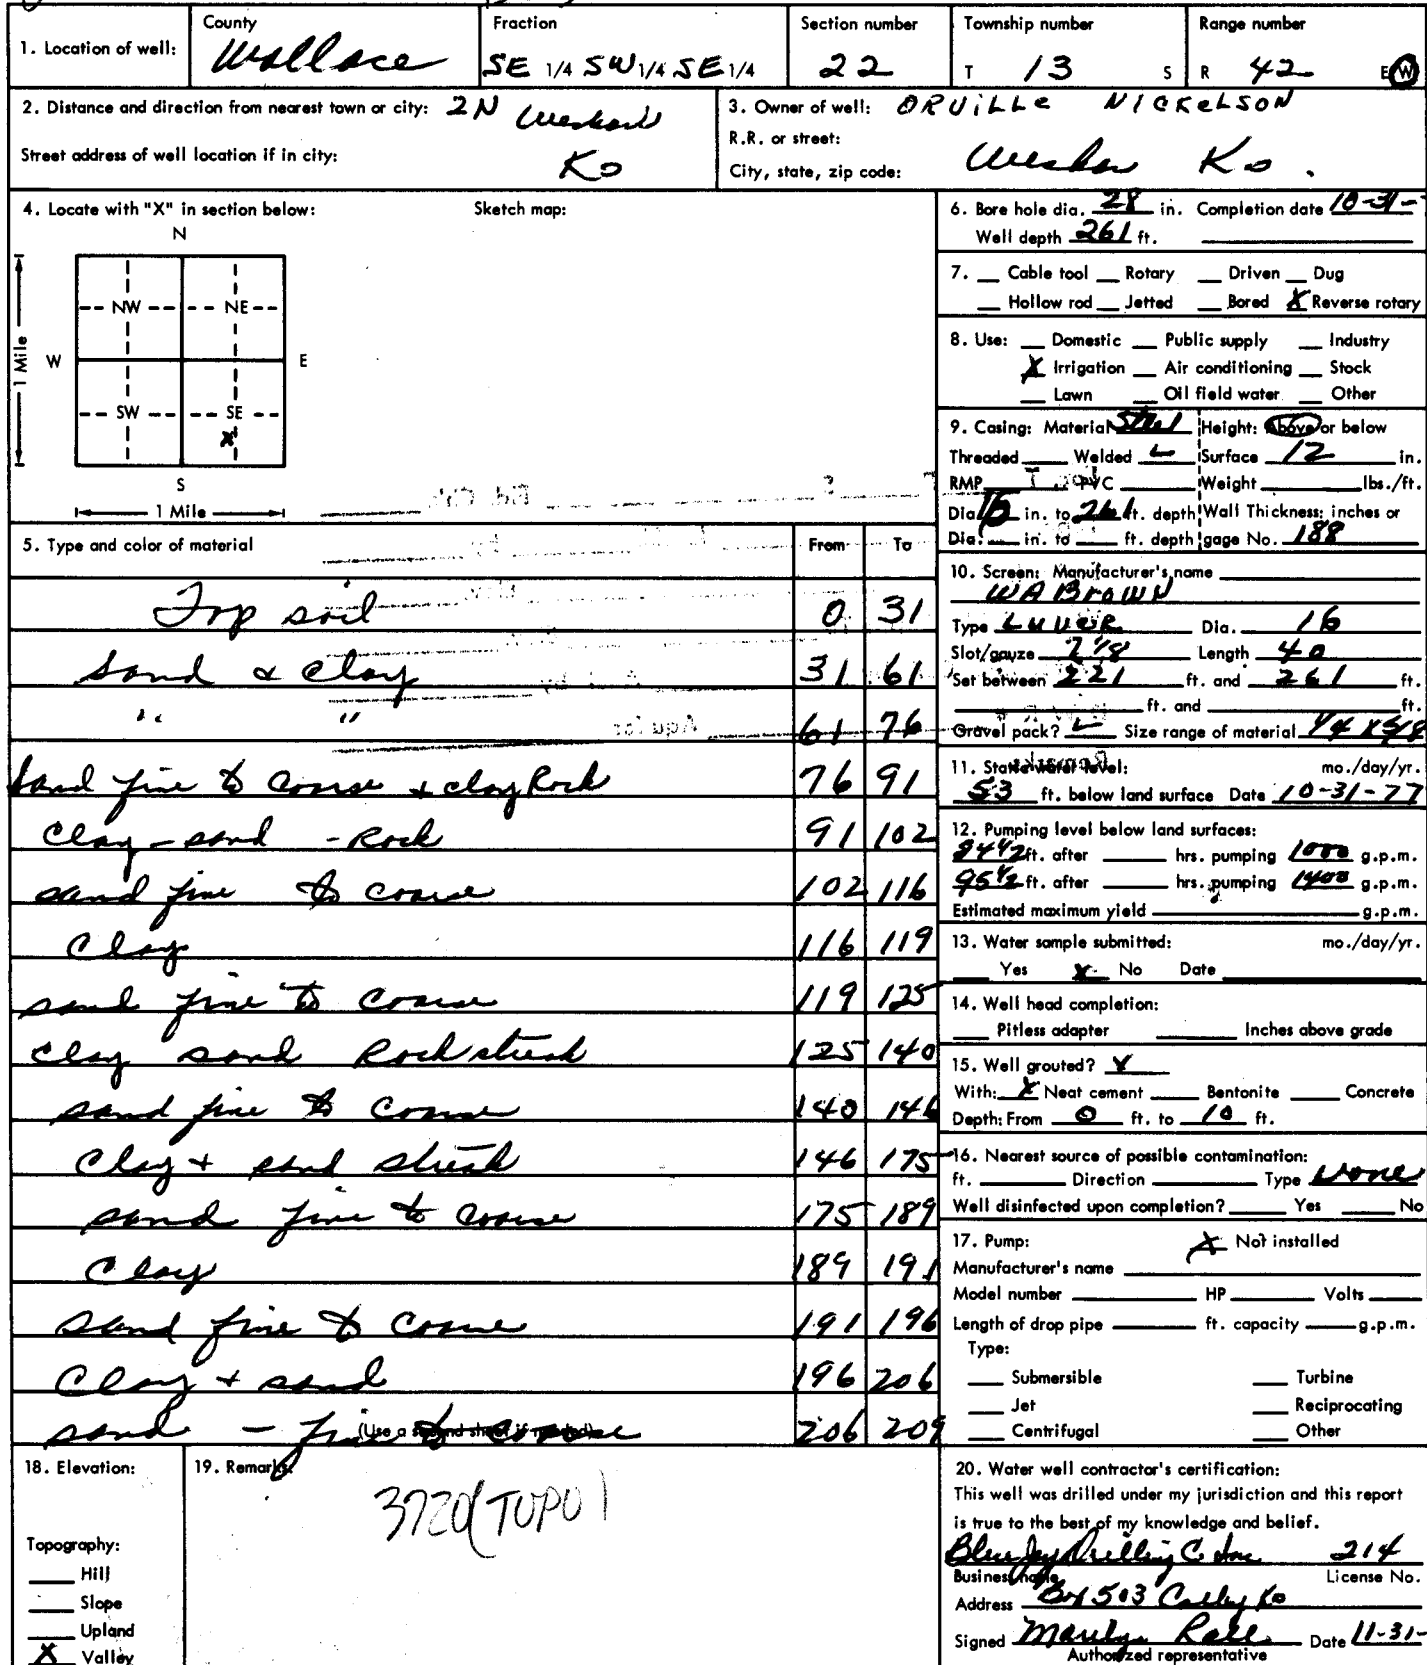 County Fraction Section number Township number Range number
1. Location of well: Wallace SE 1/4 SW 1/4 SE 1/4 22 T 13 S R 42 E W
2. Distance and direction from nearest town or city: 2N
Street address of well location if in city: Ks
3. Owner of well: ORVILLE NICKELSON
R.R. or street:
City, state, zip code: Ks.
4. Locate with "X" in section below: Sketch map:
N
NW NE
1 Mile W E
SW SE
X
S
1 Mile
5. Type and color of material From To
Top soil 0 31
Sand & Clay 31 61
" " 61 76
Sand fine to coarse + clay Rock 76 91
Clay - sand - Rock 91 102
sand fine to coarse 102 116
Clay 116 119
sand fine to coarse 119 125
Clay sand Rock streak 125 140
sand fine to coarse 140 146
Clay + sand streak 146 175
sand fine to coarse 175 189
Clay 189 191
sand fine to coarse 191 196
Clay + sand 196 206
sand - fine to coarse 206 209
(Use a second sheet if needed)
6. Bore hole dia. 28 in. Completion date 10-31-
Well depth 261 ft.
7. Cable tool Rotary Driven Dug
Hollow rod Jetted Bored X Reverse rotary
8. Use: Domestic Public supply Industry
X Irrigation Air conditioning Stock
Lawn Oil field water Other
9. Casing: Material Steel Height: Above or below
Threaded Welded Surface 12 in.
RMP PVC Weight lbs./ft.
Dia. 16 in. to 261 ft. depth Wall Thickness: inches or
Dia. in. to ft. depth gage No. 188
10. Screen: Manufacturer's name
WA Brown
Type LUVER Dia. 16
Slot/gauze Length 40
Set between 221 ft. and 261 ft.
ft. and ft.
Gravel pack? Size range of material
11. Static water level: mo./day/yr.
53 ft. below land surface Date 10-31-77
12. Pumping level below land surfaces:
ft. after hrs. pumping 1000 g.p.m.
95 1/2 ft. after hrs. pumping 1400 g.p.m.
Estimated maximum yield g.p.m.
13. Water sample submitted: mo./day/yr.
Yes X No Date
14. Well head completion:
Pitless adapter Inches above grade
15. Well grouted? X
With: X Neat cement Bentonite Concrete
Depth: From 0 ft. to 10 ft.
16. Nearest source of possible contamination:
ft. Direction Type None
Well disinfected upon completion? Yes No
17. Pump: X Not installed
Manufacturer's name
Model number HP Volts
Length of drop pipe ft. capacity g.p.m.
Type:
Submersible Turbine
Jet Reciprocating
Centrifugal Other
18. Elevation:
Topography:
Hill
Slope
Upland
X Valley
19. Remarks:
3720 (TOPO)
20. Water well contractor's certification:
This well was drilled under my jurisdiction and this report
is true to the best of my knowledge and belief.
Blue Jay Drilling C. Inc 214
Business name License No.
Address Box 503 Colby Ks
Signed Marilyn Date 11-31-
Authorized representative